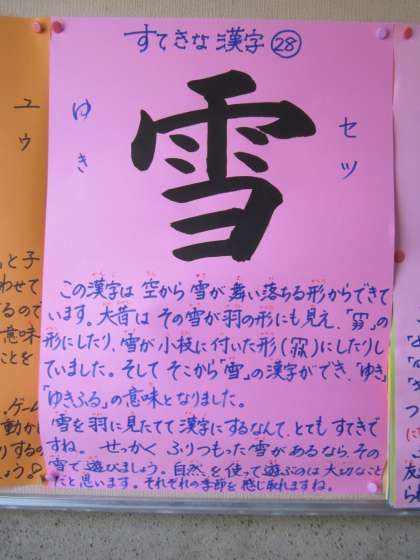 すてきな漢字 28
雪
ゆき
セツ
この漢字は空から雪が舞い落ちる形からできて
います。大昔はその雪が羽の形にも見え、「」の
形にしたり、雪が小枝に付いた形()にしたりし
ていました。そしてそこから「雪」の漢字ができ、「ゆき」
「ゆきふる」の意味となりました。
雪を羽に見たてて漢字にするなんて、とてもすてきで
すね。せっかくふりつもった雪があるなら、その
雪で遊びましょう。自然を使って遊ぶのは大切なこと
だと思います。それぞれの季節を感じ取れますね。
ユウ
と子
わせて
るので
意味
ことを
ゲーム
動か
りするの
ょう